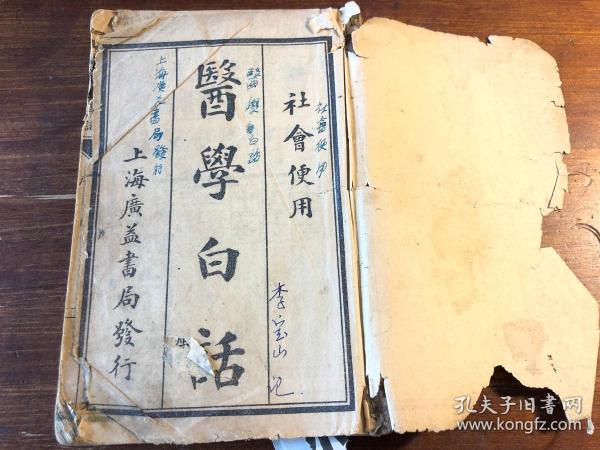 社會便用
社會便用
李宝山记.
醫學白話
醫學白話
上海廣益書局發行
上海廣益書局發行
孔夫子旧书网
www.kongfz.com